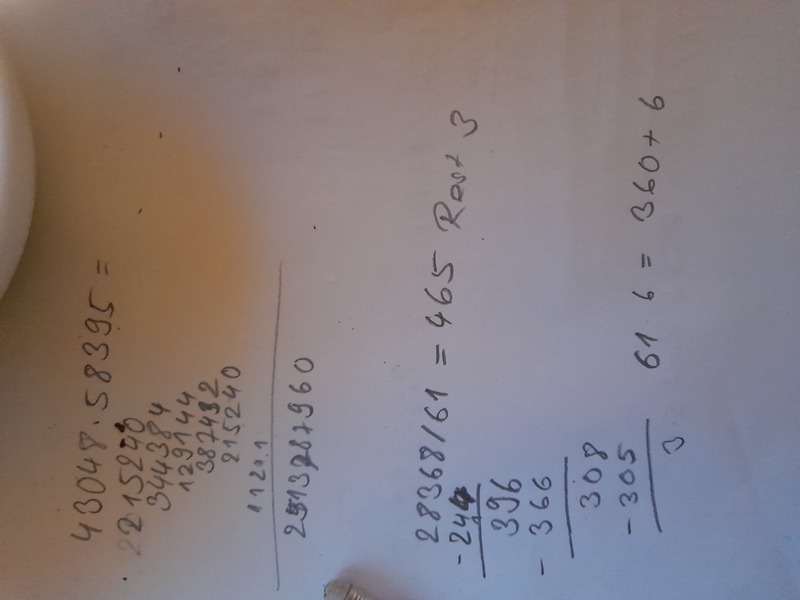 43048 · 58395 =
215240
344384
129144
387432
215240
11211
2513787960
28368/61 = 465 Rest 3
-244
396
- 366
308
- 305
3
61 · 6 = 360 + 6